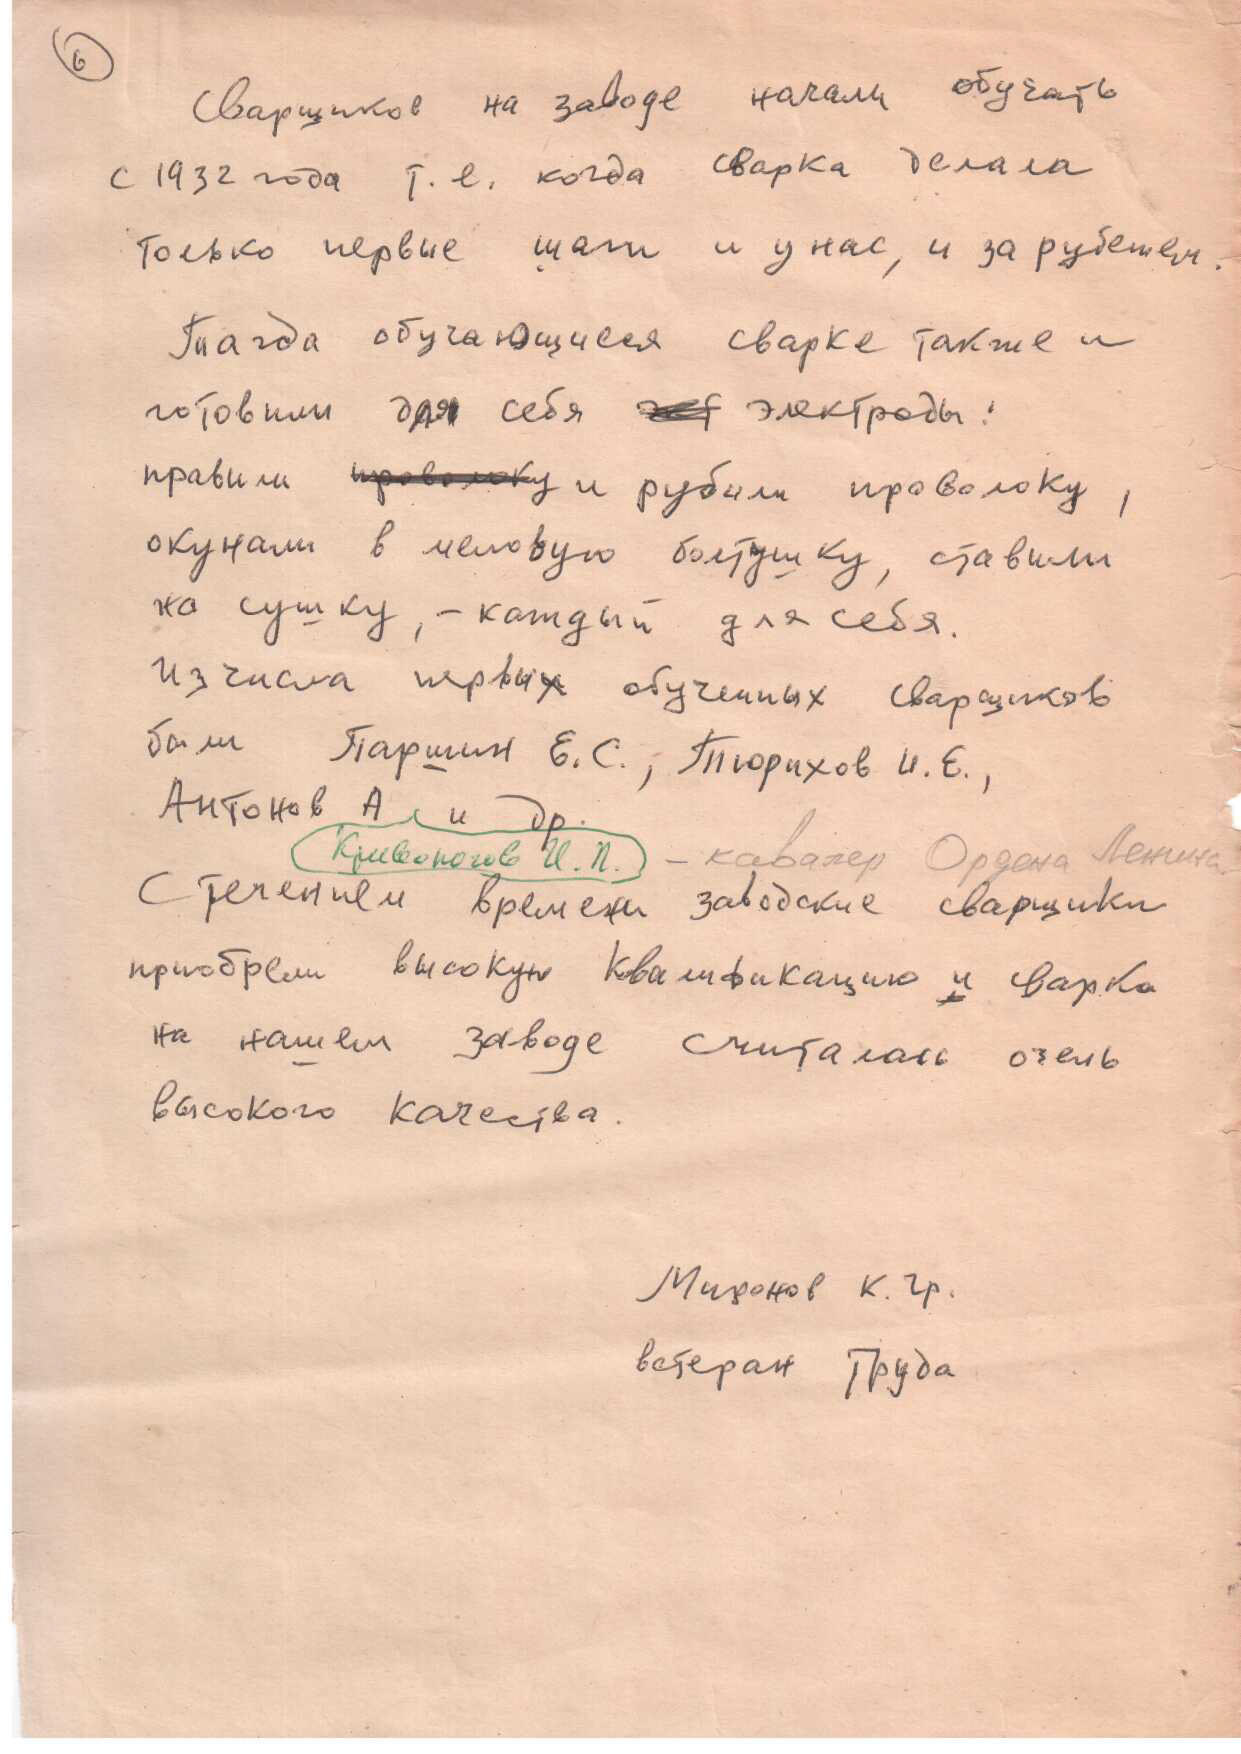 6
Сварщиков на заводе начали обучать
с 1932 года т.е. когда сварка делала
только первые шаги и у нас, и за рубежем.
Тагда обучающиеся сварке также и
готовили для себя электроды:
правили проволоку и рубили проволоку,
окунали в меловую болтушку, ставили
на сушку, – каждый для себя.
Из числа первых обученных сварщиков
были Паршин Е.С., Тюрихов И.Е.,
Антонов А и др.
Кривоногов И.П. – кавалер Ордена Ленина.
С течением времени заводские сварщики
приобрели высокую квалификацию и сварка
на нашем заводе считалась очень
высокого качества.
Миронов К. Гр.
ветеран Труда